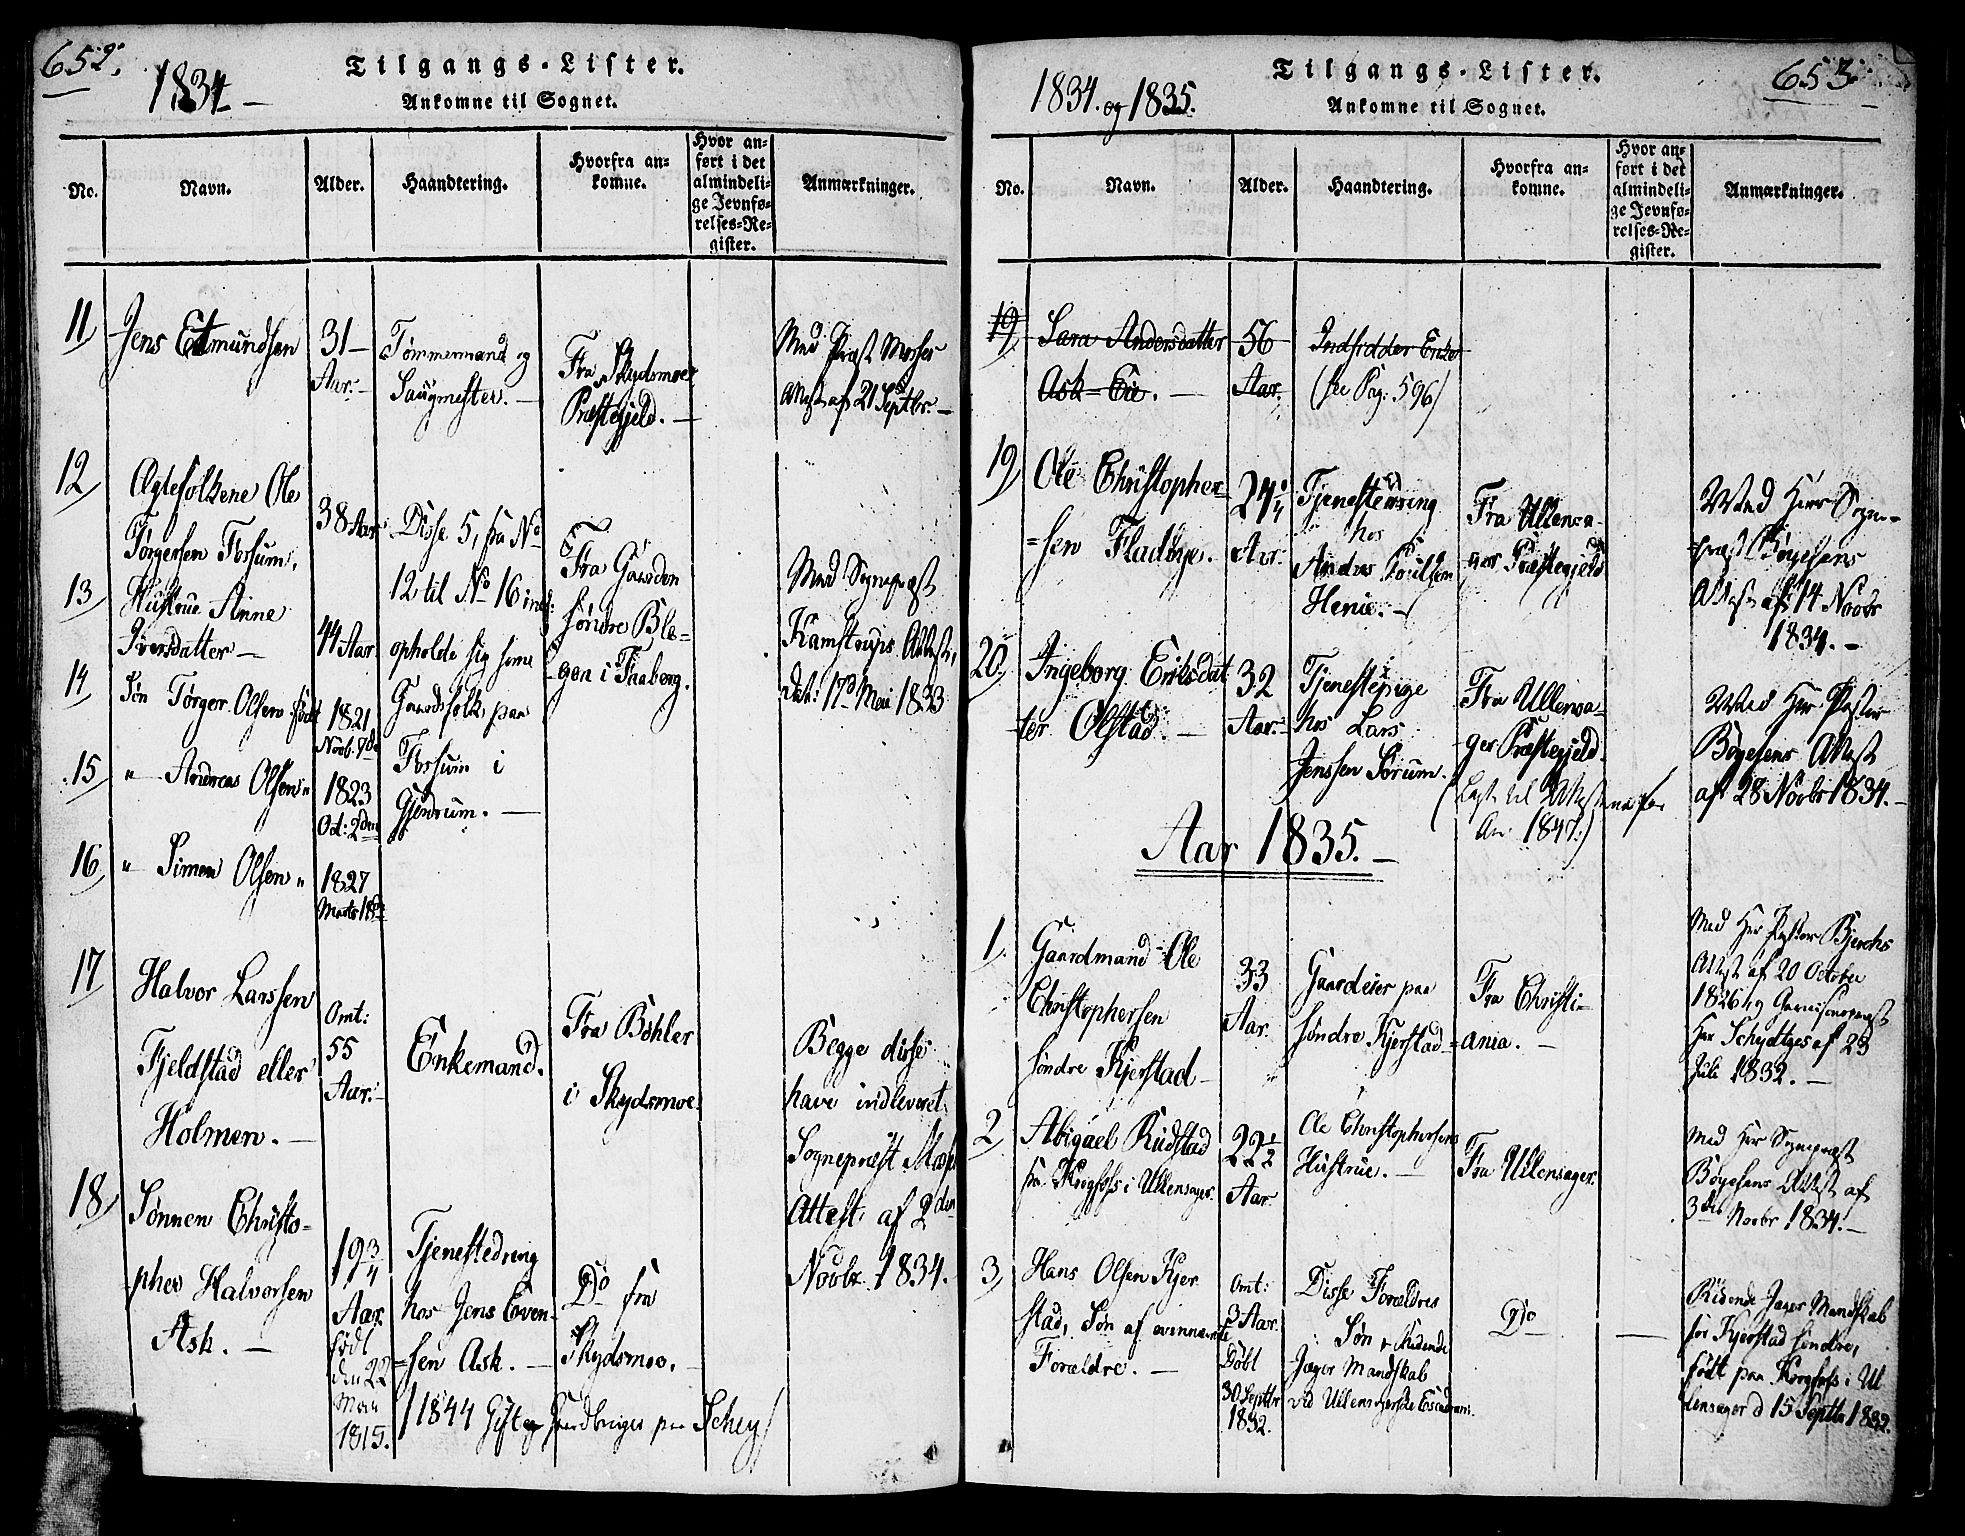 652.
1834
Tilgangs-Lister.
Ankomne til Sognet.
No.
Navn.
Alder.
Haandtering.
Hvorfra an-
komne.
Hvor an-
ført i det
almindeli-
ge Jevnfø-
relses-Re-
gister.
Anmærkninger.
11,
Jens Edmundsen
31
Aar.
Tømmermand og
Saugmester.
Fra Skydsmoe
Præstegjeld.
Med Præst Mosses
Attest af 21 Septbr.
12,
Ægtefolkene Ole
Torgersen Forsum,
38 Aar
Disse 5, fra No
12 til No 16 incl:
opholde sig some
Gaardsfolk paa
Forsum i
Gjerdrum.
Fra Gaarden
søndre Ble-
gen i Faaberg.
Med Sognepræst
Kamstrups Attest,
dat: 17d Mai 1833
13,
Hustrue Anne
Iversdatter
44 Aar
14
Søn Torger Olsen født
1821
Novb. 7de
15,
" Andreas Olsen "
1823
Oct: 2den
16,
" Simen Olsen "
1827
Marts 18de
17,
Halvor Larssen
Fjeldstad eller
Holmen.
Omt:
55
Aar.
Enkemand.
Fra Bøhler
i Skydsmoe
Begge disse
have indleveret
Sognepræst
Attest, af 2den
Novbr. 1834.
18,
Sønnen Christo-
pher Halvorsen
Ask.
19 3/4
Aar
født
den 22
Mai
1815.
Tjenestedreng
hos Jens Even-
sen Ask.
Do fra
Skydsmoe.
/1844 Gift og Gaardbruger paa Schey/
653
1834. og 1835.
Tilgangs-Lister.
Ankomne til Sognet.
No.
Navn.
Alder.
Haandtering.
Hvorfra an-
komne.
Hvor an-
ført i det
almindeli-
ge Jevnfø-
relses-Re-
gister.
Anmærkninger.
19,
Sara Andersdatter
Ask-Eie.
56
Aar.
Indsidder Enke
(see Pag: 596)
19,
Ole Christopher-
=sen Fladbye.
24 1/4
Aar.
Tjenestedreng
hos
Anders Poulsen
Henie.
Fra Ullensa-
ger Præstegjeld
Med Herr Sogne-
præst Bøyesens
Attest af 14 Novbr
1834.
20,
Ingeborg Eriksdat
ter Olstad.
32
Aar.
Tjenestepige
hos Lars
Jenssen Sørum.
Fra Ullensa-
ger Præstegjeld.
Med Her Pastor
Bøyesens Attest
af 28 Novbr 1834.
(Lagt til Attesterne for
Aar 1847.)
Aar 1835.
1.
Gaardmand Ole
Christophersen
søndre Kjerstad
33
Aar.
Gaardeier paa
søndre Kjerstad
Fra Christi-
ania.
Med Her Pastor Bjerchs
Attest af 20 October
1826 og Garnisonspræst
Her Schydtzes af 23
Juli 1832.
2,
Abigael Rudstad
fra Krogfoss i Ullensager.
22 1/2
Aar
Ole Christophersens
Hustrue.
Fra Ullensager.
Med Her Sognepræst
Bøyesens Attest af
3die Novbr 1834.
3,
Hans Olsen Kjer
stad, Søn af ovennævnte
Forældre.
Omt:
3 Aar.
Døbt
30 Septbr
1832.
Disse Forældres
Søn & Ridende
Jæger Mandskab
ved Ullensagerske Escadrons.
Do
Ridende Jæger Mandskab
for Kjerstad søndre,
født paa Krogfoss i Ul
lensager d 15 Septbr 1832.